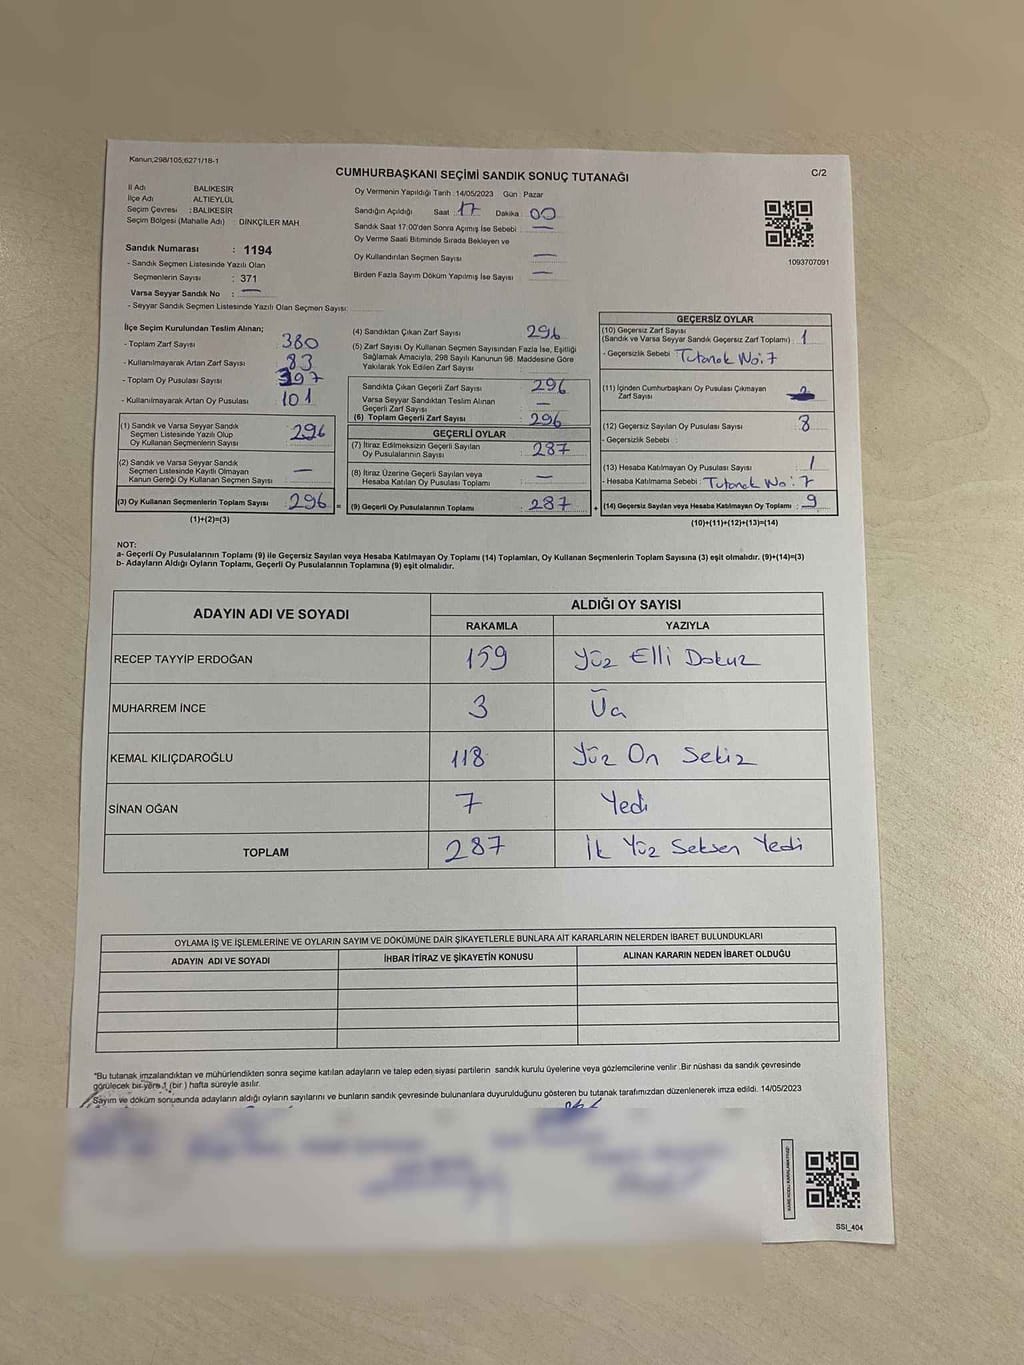 Kanun;298/105;6271/18-1
CUMHURBAŞKANI SEÇİMİ SANDIK SONUÇ TUTANAĞI
C/2
İl Adı BALIKESİR
İlçe Adı ALTIEYLÜL
Seçim Çevresi : BALIKESİR
Seçim Bölgesi (Mahalle Adı) : DİNKÇİLER MAH
Sandık Numarası : 1194
- Sandık Seçmen Listesinde Yazılı Olan
Seçmenlerin Sayısı : 371
Varsa Seyyar Sandık No : —
- Seyyar Sandık Seçmen Listesinde Yazılı Olan Seçmen Sayısı:
Oy Vermenin Yapıldığı Tarih :14/05/2023 Gün : Pazar
Sandığın Açıldığı Saat 17 Dakika 00
Sandık Saat 17:00'den Sonra Açımış İse Sebebi : —
Oy Verme Saati Bitiminde Sırada Bekleyen ve
Oy Kullandırılan Seçmen Sayısı —
Birden Fazla Sayım Döküm Yapılmış İse Sayısı —
1093707091
İlçe Seçim Kurulundan Teslim Alınan;
- Toplam Zarf Sayısı : 380
- Kullanılmayarak Artan Zarf Sayısı : 83
- Toplam Oy Pusulası Sayısı : 397
- Kullanılmayarak Artan Oy Pusulası : 101
(1) Sandık ve Varsa Seyyar Sandık
Seçmen Listesinde Yazılı Olup
Oy Kullanan Seçmenlerin Sayısı : 296
(2) Sandık ve Varsa Seyyar Sandık
Seçmen Listesinde Kayıtlı Olmayan
Kanun Gereği Oy Kullanan Seçmen Sayısı —
(3) Oy Kullanan Seçmenlerin Toplam Sayısı : 296 =
(1)+(2)=(3)
(4) Sandıktan Çıkan Zarf Sayısı 296
(5) Zarf Sayısı Oy Kullanan Seçmen Sayısından Fazla İse, Eşitliği
Sağlamak Amacıyla, 298 Sayılı Kanunun 98. Maddesine Göre
Yakılarak Yok Edilen Zarf Sayısı
Sandıkta Çıkan Geçerli Zarf Sayısı : 296
Varsa Seyyar Sandıktan Teslim Alınan
Geçerli Zarf Sayısı : —
(6) Toplam Geçerli Zarf Sayısı : 296
GEÇERLİ OYLAR
(7) İtiraz Edilmeksizin Geçerli Sayılan
Oy Pusulalarının Sayısı : 287
(8) İtiraz Üzerine Geçerli Sayılan veya
Hesaba Katılan Oy Pusulası Toplamı : —
(9) Geçerli Oy Pusulalarının Toplamı : 287 +
GEÇERSİZ OYLAR
(10) Geçersiz Zarf Sayısı
(Sandık ve Varsa Seyyar Sandık Geçersiz Zarf Toplamı) : 1
- Geçersizlik Sebebi : Tutanak No: 7
(11) İçinden Cumhurbaşkanı Oy Pusulası Çıkmayan
Zarf Sayısı
(12) Geçersiz Sayılan Oy Pusulası Sayısı : 8
- Geçersizlik Sebebi :
(13) Hesaba Katılmayan Oy Pusulası Sayısı : 1
- Hesaba Katılmama Sebebi : Tutanak No: 7
(14) Geçersiz Sayılan veya Hesaba Katılmayan Oy Toplamı : 9
(10)+(11)+(12)+(13)=(14)
NOT:
a- Geçerli Oy Pusulalarının Toplamı (9) ile Geçersiz Sayılan veya Hesaba Katılmayan Oy Toplamı (14) Toplamları, Oy Kullanan Seçmenlerin Toplam Sayısına (3) eşit olmalıdır. (9)+(14)=(3)
b- Adayların Aldığı Oyların Toplamı, Geçerli Oy Pusulalarının Toplamına (9) eşit olmalıdır.
ADAYIN ADI VE SOYADI
ALDIĞI OY SAYISI
RAKAMLA YAZIYLA
RECEP TAYYİP ERDOĞAN 159 Yüz Elli Dokuz
MUHARREM İNCE 3 Üç
KEMAL KILIÇDAROĞLU 118 Yüz On Sekiz
SİNAN OĞAN 7 Yedi
TOPLAM 287 İk Yüz Seksen Yedi
OYLAMA İŞ VE İŞLEMLERİNE VE OYLARIN SAYIM VE DÖKÜMÜNE DAİR ŞİKAYETLERLE BUNLARA AİT KARARLARIN NELERDEN İBARET BULUNDUKLARI
ADAYIN ADI VE SOYADI İHBAR İTİRAZ VE ŞİKAYETİN KONUSU ALINAN KARARIN NEDEN İBARET OLDUĞU
"Bu tutanak imzalandıktan ve mühürlendikten sonra seçime katılan adayların ve talep eden siyasi partilerin sandık kurulu üyelerine veya gözlemcilerine verilir .Bir nüshası da sandık çevresinde
görülecek bir yere 1 (bir ) hafta süreyle asılır.
Sayım ve döküm sonucunda adayların aldığı oyların sayılarını ve bunların sandık çevresinde bulunanlara duyurulduğunu gösteren bu tutanak tarafımızdan düzenlenerek imza edildi. 14/05/2023
KAREKODU KARALAMAYINIZ!
SSI_404